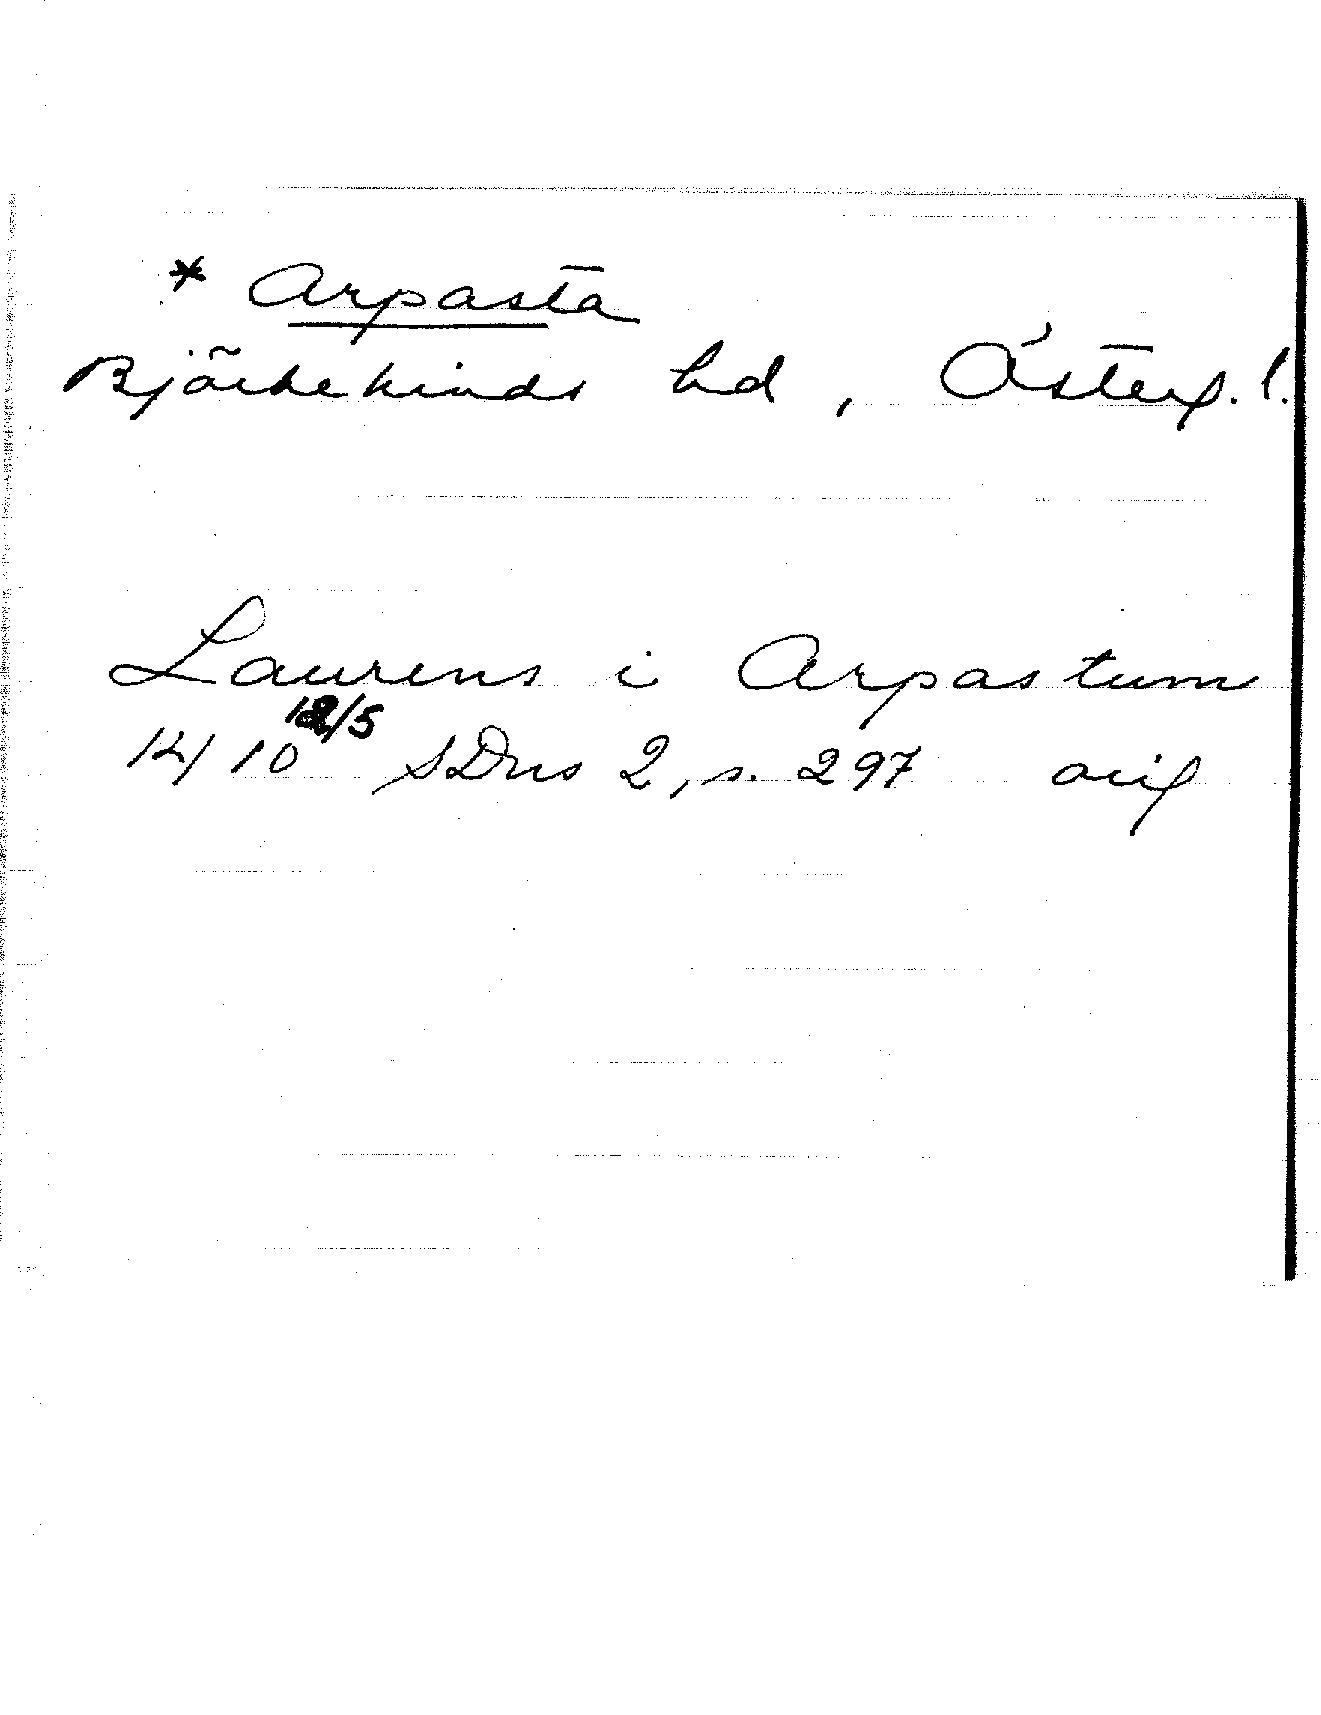 * Arpasta
Björkekinds hd, Österg. l.
Laurens i Arpastum
1410 12/5 SDns 2, s. 297 orig